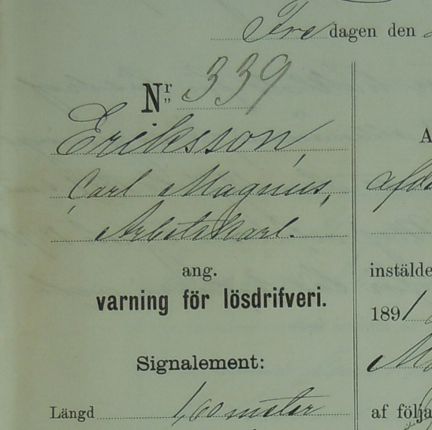 Fre dagen den
Nr 339
Eriksson,
Carl Magnus,
Arbetskarl.
ang.
varning för lösdrifveri.
Signalement:
Längd 1,60 meter
A
instälde
1891
af följa